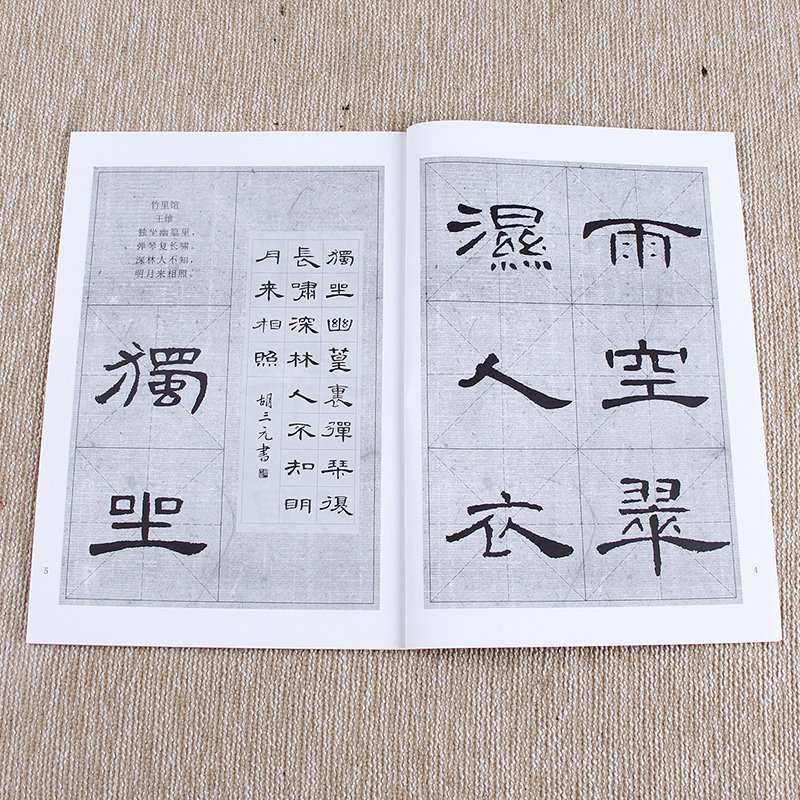 雨空翠
濕人衣
4
竹里馆
王维
独坐幽篁里，
弹琴复长啸。
深林人不知，
明月来相照。
獨坐幽篁裏彈琴復
長嘯深林人不知明
月來相照
胡三元書
獨坐
5